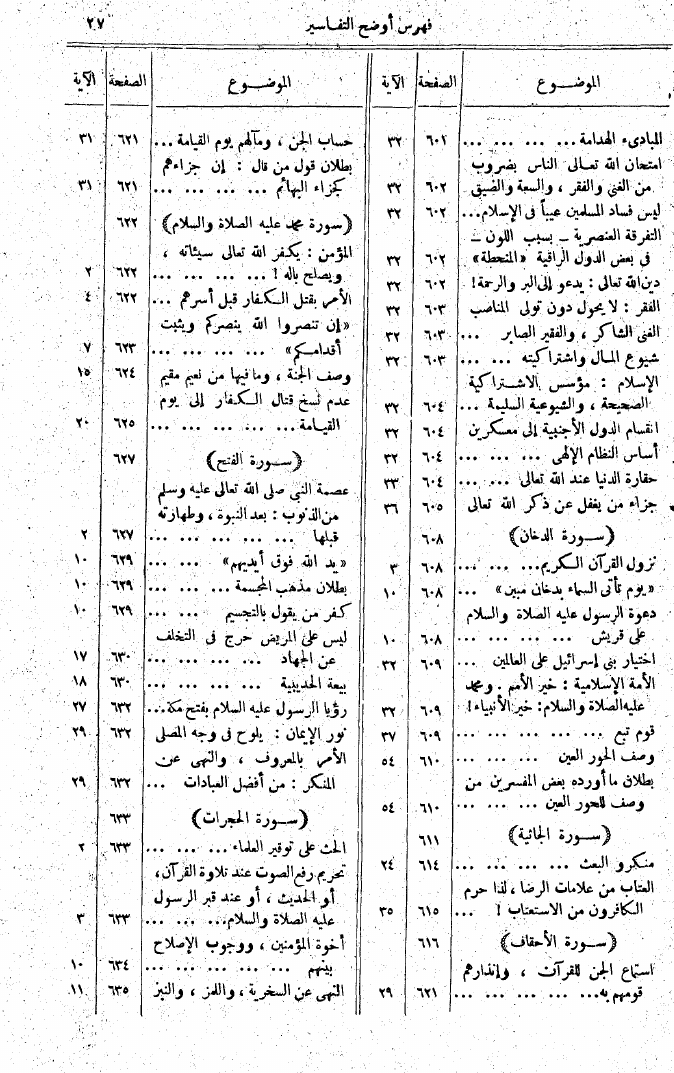 فهرس أوضح التفاسير ٢٧
الموضــوع الصفحة الآية
المبادىء الهدامة... ... ... ... ٦٠١ ٣٢
امتحان الله تعالى الناس بضروب
من الغنى والفقر ، والسعة والضيق ٦٠٢ ٣٢
ليس فساد المسلمين عيباً فى الإسلام... ٦٠٢ ٣٢
التفرقة العنصرية ــ بسبب اللون ــ
فى بعض الدول الراقية «المنحطة» ٦٠٢ ٣٢
دين الله تعالى: يدعو إلى البر والرحمة! ٦٠٢ ٣٢
الفقر : لا يحول دون تولى المناصب ٦٠٣ ٣٢
الغنى الشاكر ، والفقير الصابر ... ٦٠٣ ٣٢
شيوع المال واشتراكيته ... ... ٦٠٣ ٣٢
الإسلام : مؤسس الاشتراكية
الصحيحة ، والشيوعية السليمة ... ٦٠٤ ٣٢
انقسام الدول الأجنبية إلى معسكرين ٦٠٤ ٣٢
أساس النظام الإلهى ... ... ... ٦٠٤ ٣٢
حقارة الدنيا عند الله تعالى ... ... ٦٠٤ ٣٣
جزاء من يغفل عن ذكر الله تعالى ٦٠٥ ٣٦
(ســورة الدخان) ٦٠٨
نزول القرآن الكريم... ... ... ٦٠٨ ٣
«يوم تأتى السماء بدخان مبين» ... ٦٠٨ ١٠
دعوة الرسول عليه الصلاة والسلام
على قريش ... ... ... ... ٦٠٨ ١٠
اختيار بنى إسرائيل على العالمين ... ٦٠٩ ٣٢
الأمة الإسلامية : خير الأمم . ومحمد
عليه الصلاة والسلام: خير الأنبياء! ٦٠٩ ٣٢
قوم تبع ... ... ... ... ... ٦٠٩ ٣٧
وصف الحور العين ... ... ... ٦١٠ ٥٤
بطلان ما أورده بعض المفسرين من
وصف للحور العين ... ... ... ٦١٠ ٥٤
(ســورة الجاثية) ٦١١
منكرو البعث ... ... ... ... ٦١٤ ٢٤
العتاب من علامات الرضا ، لذا حرم
الكافرون من الاستعتاب ! ... ٦١٥ ٣٥
(ســورة الأحقاف) ٦١٦
استماع الجن للقرآن ، وإنذارهم
قومهم به... ... ... ... ... ٦٢١ ٢٩
الموضــوع الصفحة الآية
حساب الجن ، ومآلهم يوم القيامة ... ٦٢١ ٣١
بطلان قول من قال : إن جزاءهم
كجزاء البهائم ... ... ... ... ٦٢١ ٣١
(سورة محمد عليه الصلاة والسلام) ٦٢٢
المؤمن : يكفر الله تعالى سيئاته ،
ويصلح باله ! ... ... ... ... ٦٢٢ ٢
الأمر بقتل الكفار قبل أسرهم ... ٦٢٢ ٤
«إن تنصروا الله ينصركم ويثبت
أقدامكم» ... ... ... ... ٦٢٣ ٧
وصف الجنة ، وما فيها من نعيم مقيم ٦٢٤ ١٥
عدم نسخ قتال الكفار إلى يوم
القيامة... ... ... ... ... ٦٢٥ ٢٠
(ســورة الفتح) ٦٢٧
عصمة النبى صلى الله تعالى عليه وسلم
من الذنوب : بعد النبوة ، وطهارته
قبلها ... ... ... ... ... ٦٢٧ ٢
«يد الله فوق أيديهم» ... ... ٦٢٩ ١٠
بطلان مذهب المجسمة ... ... ... ٦٢٩ ١٠
كفر من يقول بالتجسيم ... ... ٦٢٩ ١٠
ليس على المريض حرج فى التخلف
عن الجهاد ... ... ... ... ٦٣٠ ١٧
بيعة الحديبية ... ... ... ... ٦٣٠ ١٨
رؤيا الرسول عليه السلام بفتح مكة... ٦٣٢ ٢٧
نور الإيمان : يلوح فى وجه المصلى ٦٣٢ ٢٩
الأمر بالمعروف ، والنهى عن
المنكر : من أفضل العبادات ... ٦٣٢ ٢٩
(ســورة الحجرات) ٦٣٣
الحث على توقير العلماء... ... ... ٦٣٣ ٢
تحريم رفع الصوت عند تلاوة القرآن،
أو الحديث ، أو عند قبر الرسول
عليه الصلاة والسلام... ... ... ٦٣٣ ٣
أخوة المؤمنين ، ووجوب الإصلاح
بينهم ... ... ... ... ... ٦٣٤ ١٠
النهى عن السخرية ، واللمز ، والنبز ٦٣٥ ١١